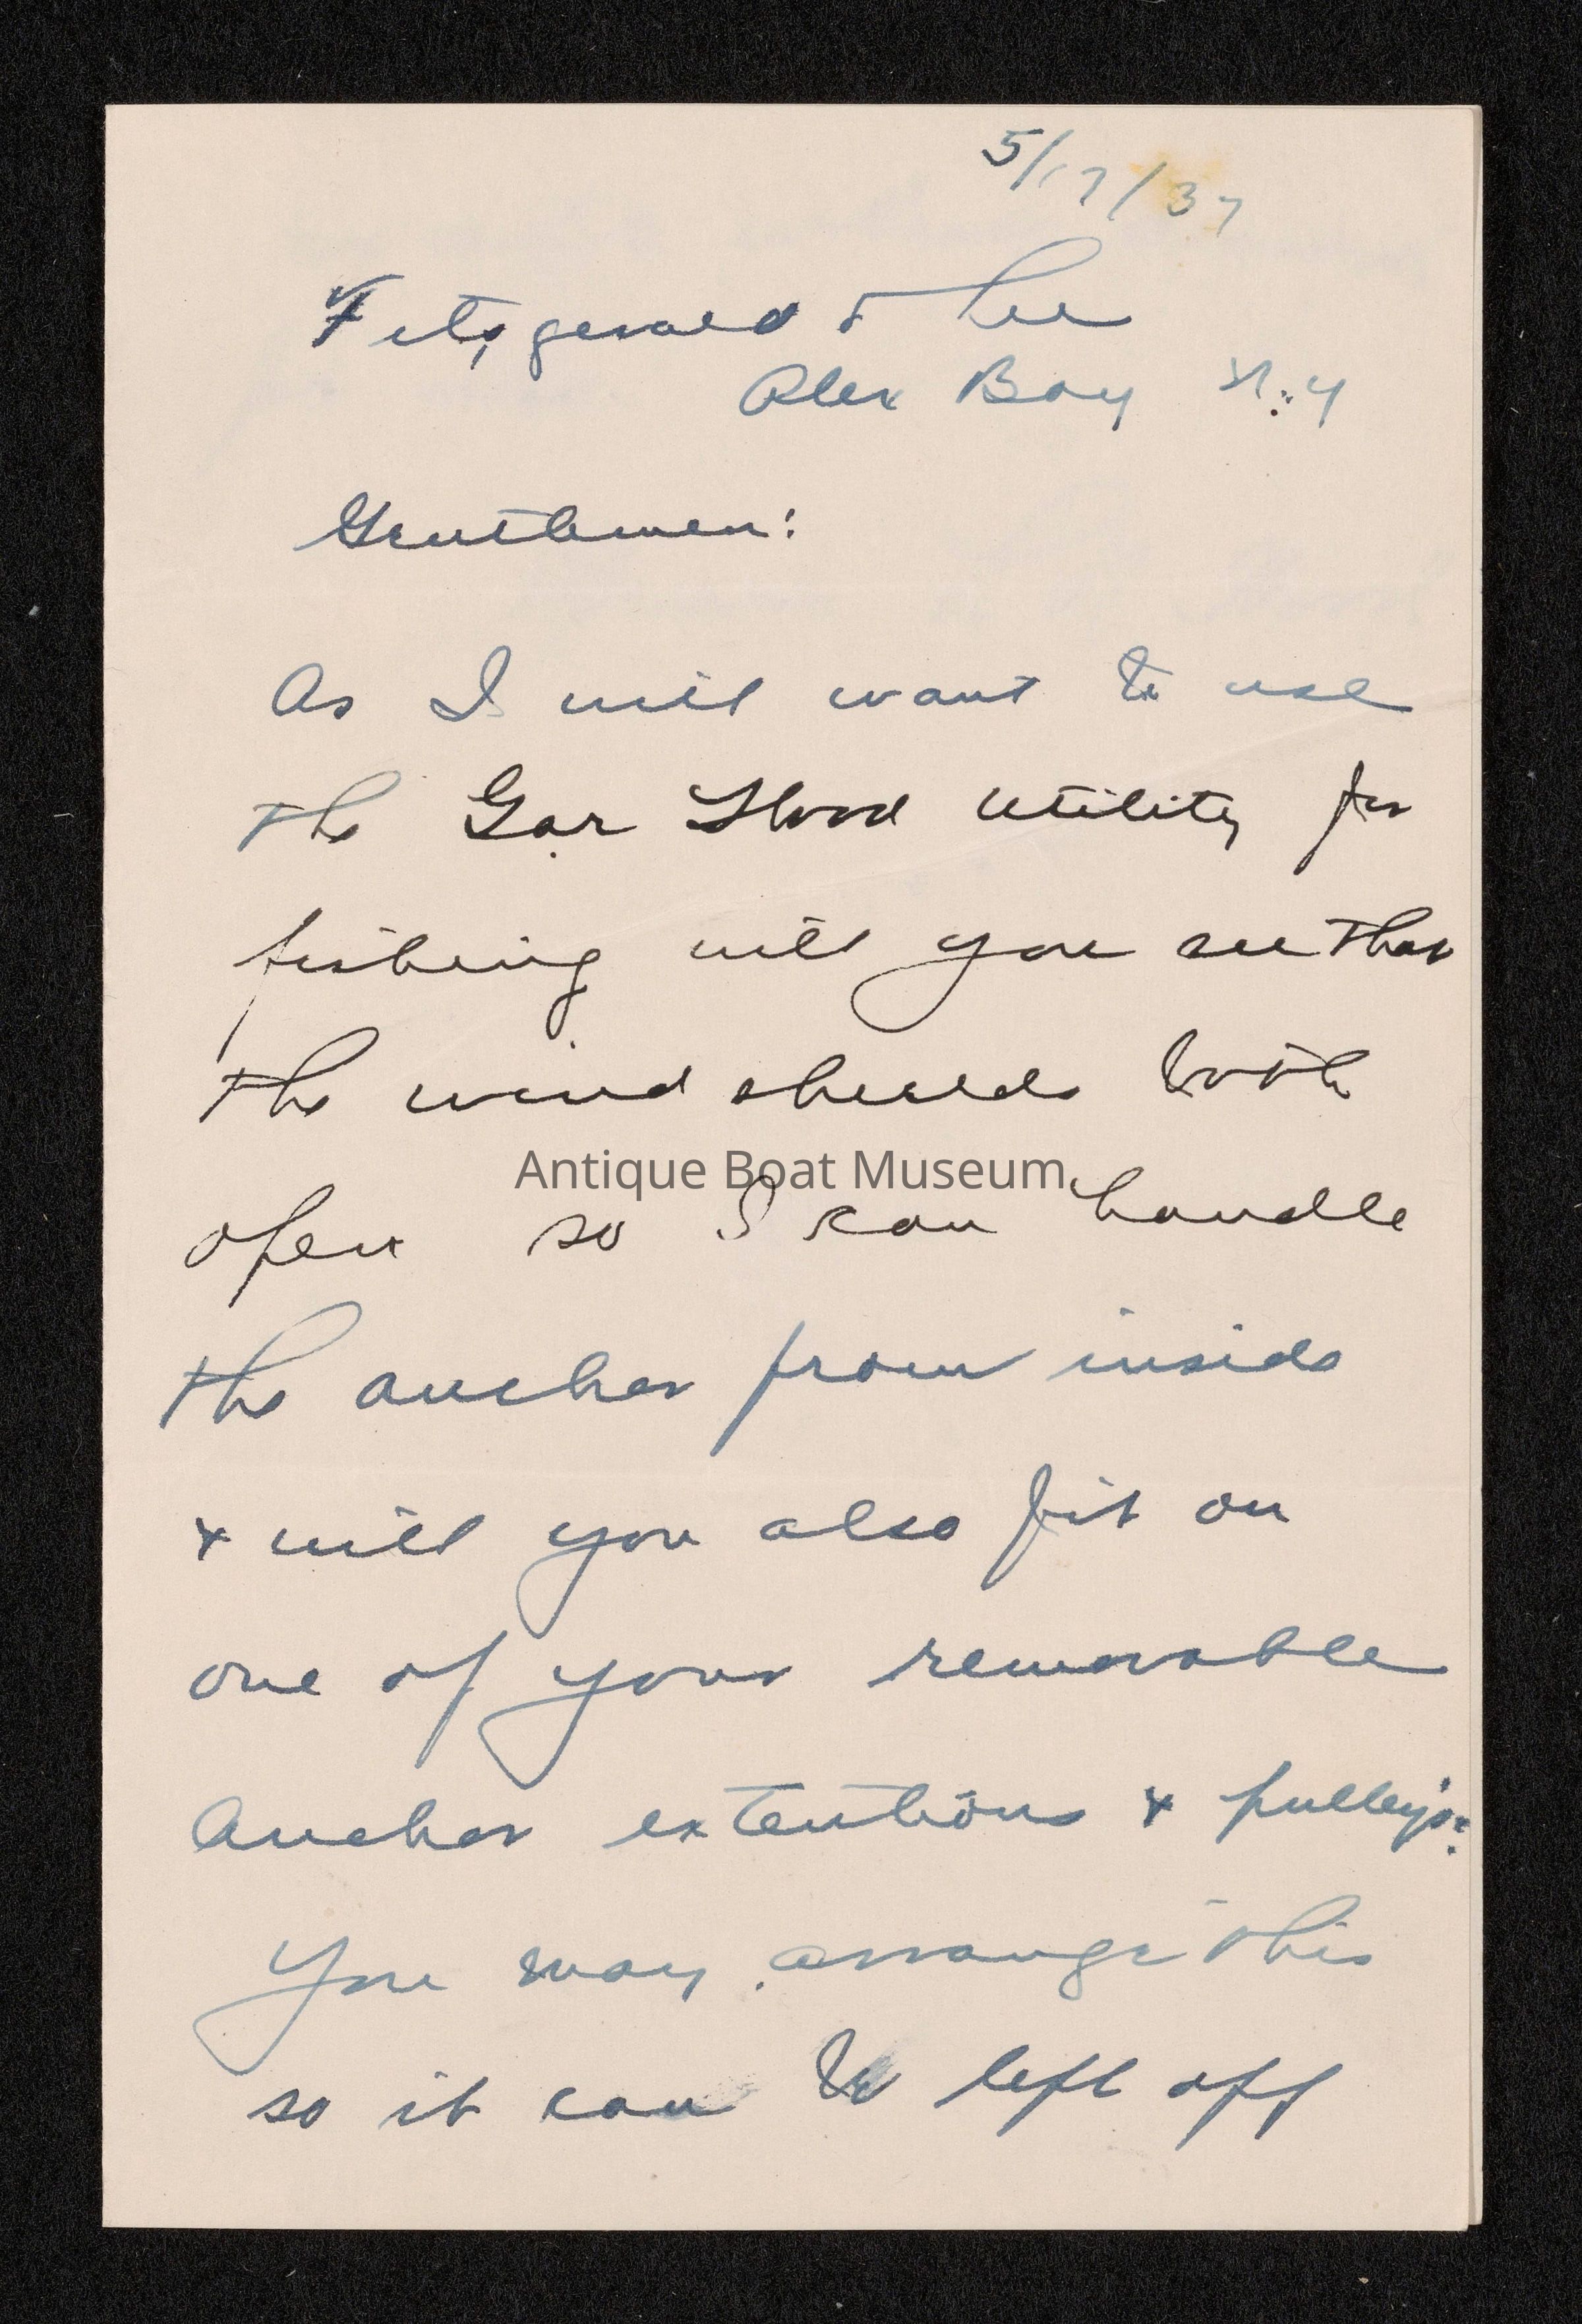 5/17/37
Fitzgerald & Lee
Alex Bay N.Y
Gentlemen:
As I will want to use
the Gar Wood utility for
fishing will you see that
the wind shields both
Antique Boat Museum
open so I can handle
the anchor from inside
& will you also fit on
one of your removable
anchor extentions & pulleys.
You may arrange this
so it can be left off